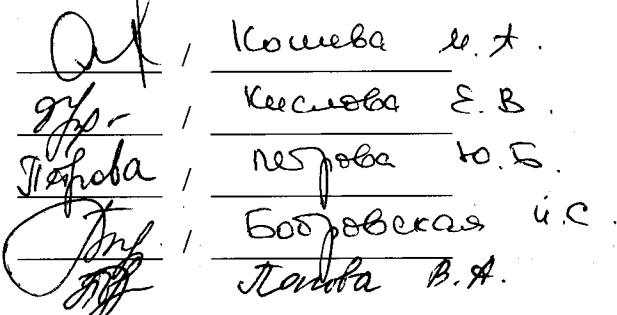 / Кошева М. А.
/ Кислова Е. В.
Петрова / Петрова Ю. Б.
/ Бобровская И. С.
Попова В. А.